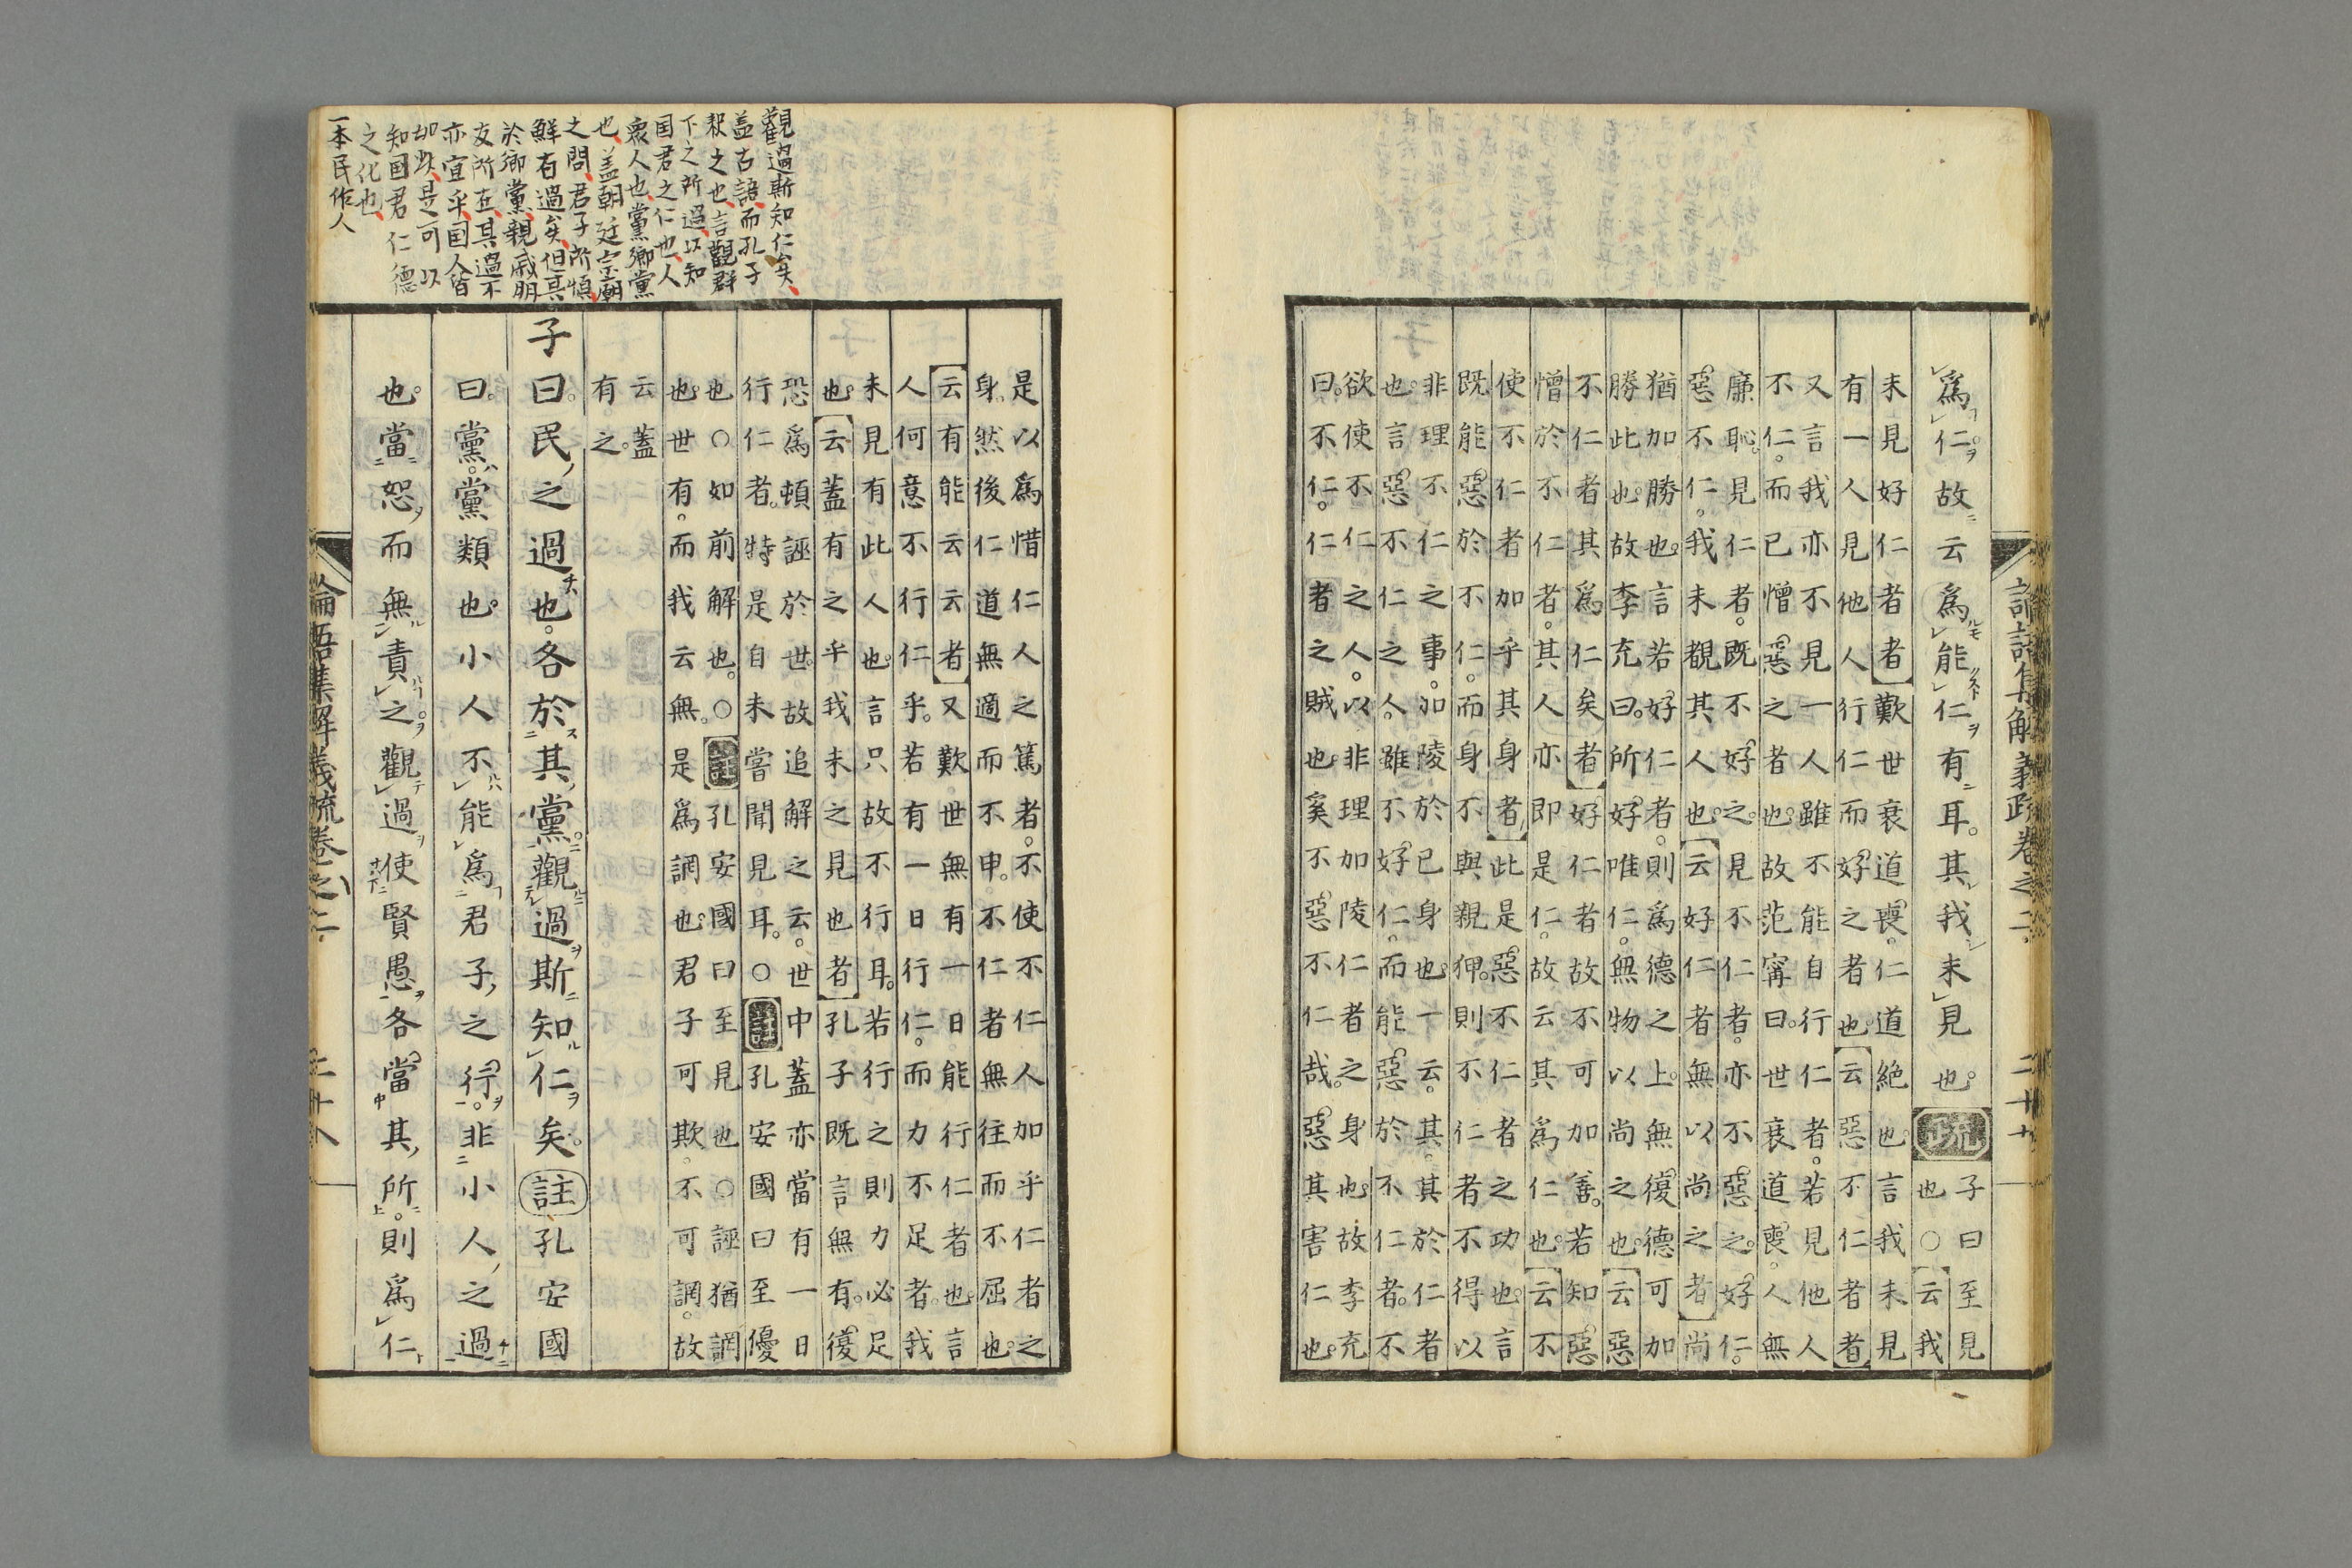 論語集解義疏卷之二 二十七
爲仁故云爲能仁有耳其我未見也疏
子曰至見
也○云我
未見好仁者者歎世衰道喪仁道絶也言我未見
有一人見他人行仁而好之者也云惡不仁者者
又言我亦不見一人雖不能自行仁者若見他人
不仁而已憎惡之者也故范甯曰世衰道喪人無
廉恥見仁者既不好之見不仁者亦不惡之好仁
惡不仁我未覩其人也云好仁者無以尚之者尚
猶加勝也言若好仁者則爲德之上無復德可加
勝此也故李充曰所好唯仁無物以尚之也云惡
不仁者其爲仁矣者好仁者故不可加善若知惡
憎於不仁者其人亦即是仁故云其爲仁也云不
使不仁者加乎其身者此是惡不仁者之功也言
既能惡於不仁而身不與親狎則不仁者不得以
非理不仁之事加陵於己身也一云其其於仁者
也言惡不仁之人雖不好仁而能惡於不仁者不
欲使不仁之人以非理加陵仁者之身也故李充
曰不仁仁者之賊也奚不惡不仁哉惡其害仁也
是以爲惜仁人之篤者不使不仁人加乎仁者之
身然後仁道無適而不申不仁者無往而不屈也
云有能云云者又歎世無有一日能行仁者也言
人何意不行仁乎若有一日行仁而力不足者我
未見有此人也言只故不行耳若行之則力必足
也云蓋有之乎我未之見也者孔子既言無有復
恐爲頓誣於世故追解之云世中蓋亦當有一日
行仁者特是自未嘗聞見耳○註孔安國曰至優
也○如前解也○註孔安國曰至見也○誣猶調
也世有而我云無是爲調也君子可欺不可調故
云蓋
有之
子曰民之過也各於其黨觀過斯知仁矣註孔安國
曰黨黨類也小人不能爲君子之行非小人之過
也當恕而無責之觀過使賢愚各當其所則爲仁
論語集解義疏卷之二 二十八
觀過斯知仁矣
蓋古語而孔子
釈之也言觀群
下之所過以知
国君之仁也人
衆人也黨鄉黨
也蓋朝廷宗廟
之間君子所慎
鮮有過矣但其
於鄉黨親戚朋
友所在其過不
亦宜乎国人皆
如此是可以
知国君仁德
之化也
一本民作人